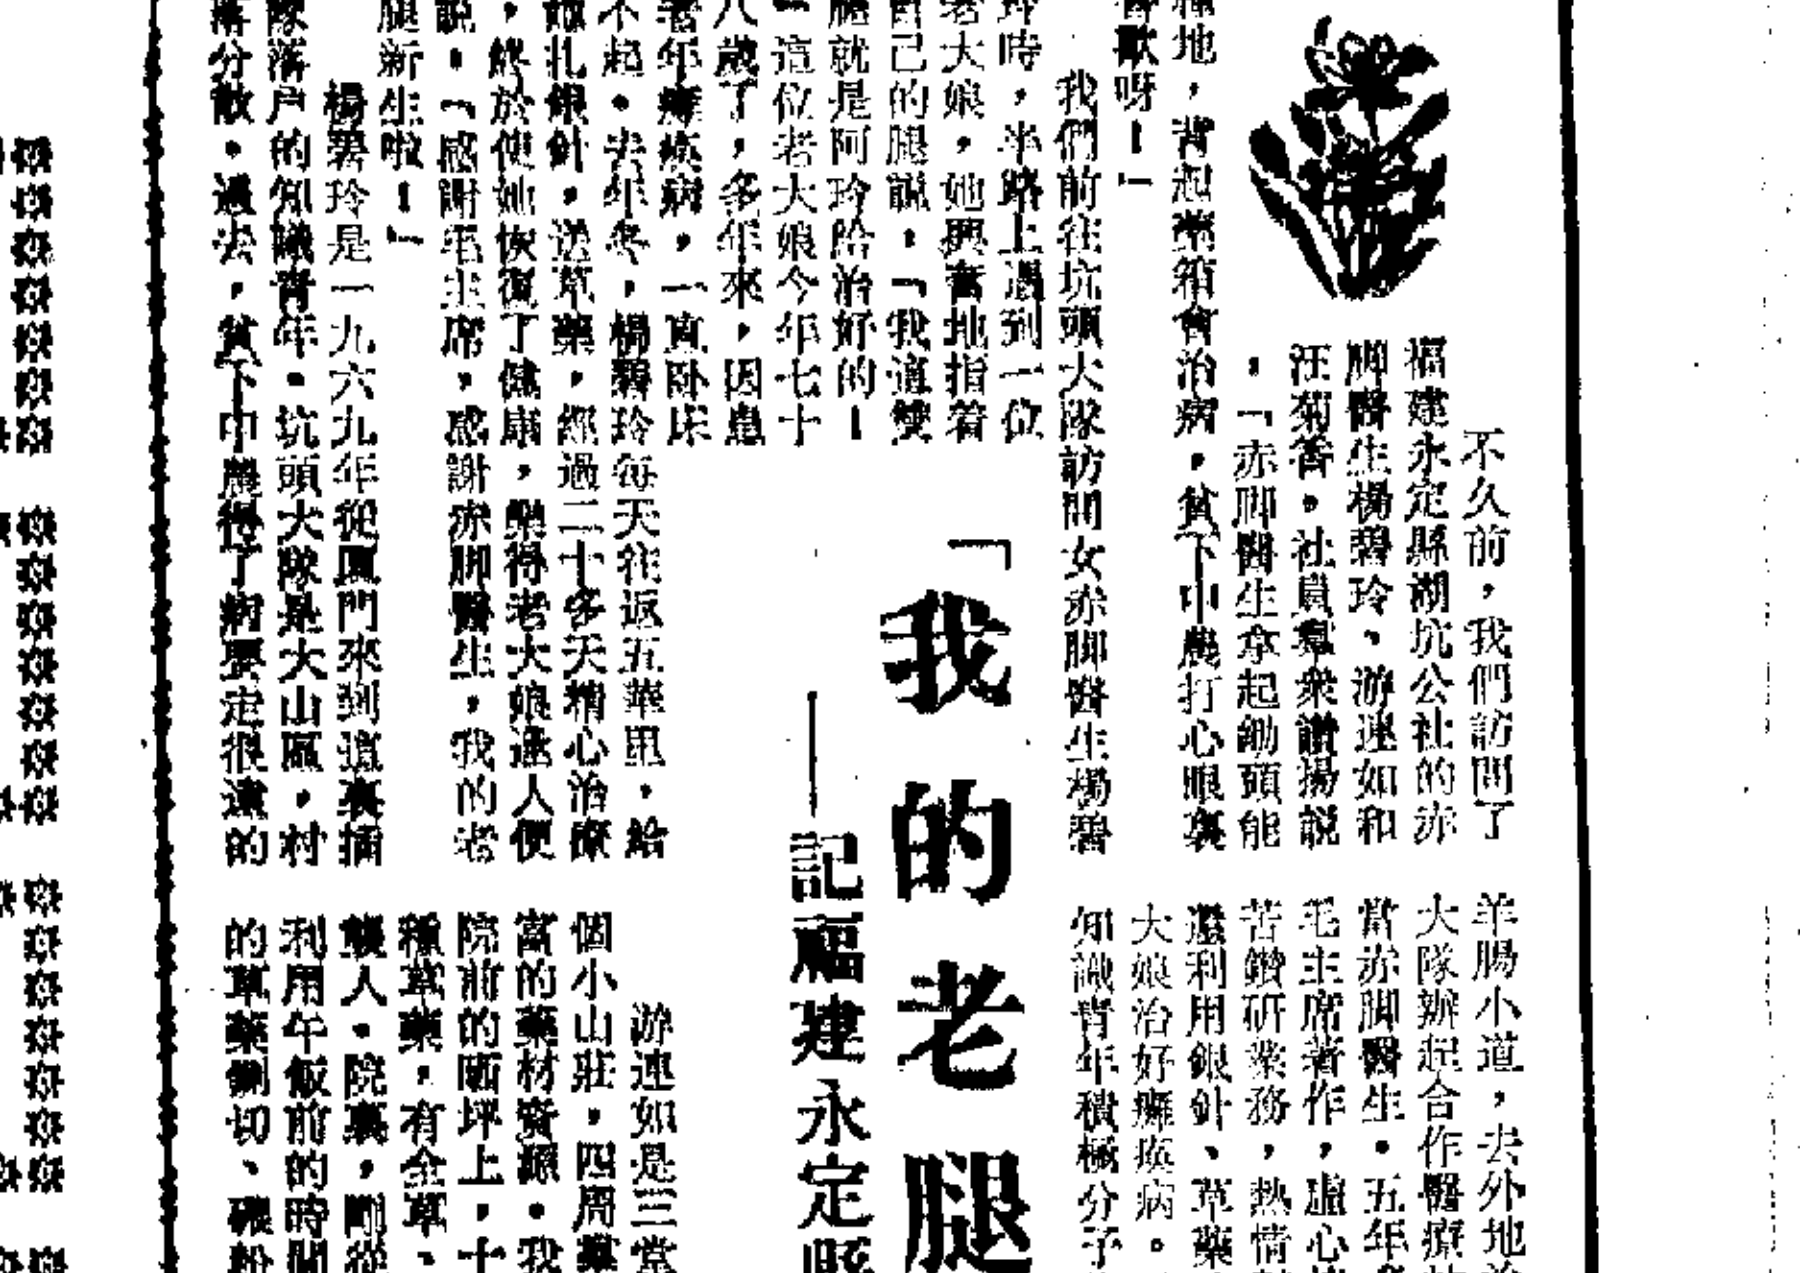 「我的老腿
——記福建永定縣
不久前，我們訪問了
福建永定縣湖坑公社的赤
脚醫生楊碧玲、游連如和
汪菊香。社員羣衆讚揚説
，「赤脚醫生拿起鋤頭能
種地，背起藥箱會治病，貧下中農打心眼裏
喜歡呀！」
我們前往坑頭大隊訪問女赤脚醫生楊碧
玲時，半路上遇到一位
老大娘，她興奮地指着
自己的腿説，「我這雙
腿就是阿玲給治好的！
」這位老大娘今年七十
八歲了，多年來，因患
老年癱瘓病，一直卧床
不起。去年冬，楊碧玲每天往返五華里，給
她扎銀針，送草藥，經過二十多天精心治療
，終於使她恢復了健康，樂得老大娘逢人便
説，「感謝毛主席，感謝赤脚醫生，我的老
腿新生啦！」
楊碧玲是一九六九年從厦門來到這裏插
隊落户的知識青年。坑頭大隊是大山區，村
落分散。過去，貧下中農得了病要走很遠的
羊腸小道，去外地
大隊辦起合作醫療
當赤脚醫生。五年
毛主席著作，虛心
苦鑽研業務，熱情
還利用銀針、草藥
大娘治好癱瘓病。
知識青年積極分子
游連如是三堂
個小山莊，四周
富的藥材資源。我
院前的晒坪上，十
種草藥，有金草、
襲人。院裏，剛從
利用午飯前的時間
的草藥鍘切、碾粉